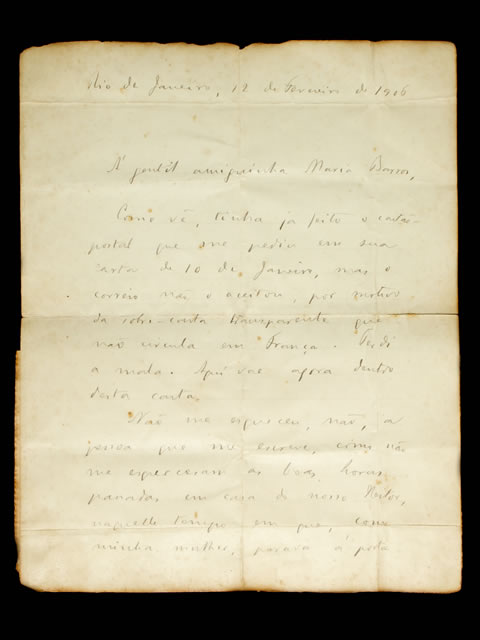 Rio de Janeiro, 12 de Fevereiro de 1906
A' gentil amiguinha Maria Barros,
Como vê, tinha já feito o cartão
postal que me pediu em sua
carta de 10 de Janeiro, mas o
correio não o aceitou, por motivo
da sobre-carta transparente que
não circula em França. Perdi
a mala. Aqui vae agora dentro
desta carta.
Não me esqueceu, não, a
pessoa que me escreve, como não
me esqueceram as boas horas
passadas em casa do nosso Heitor,
naquelle tempo em que, como
minha mulher, parava á porta